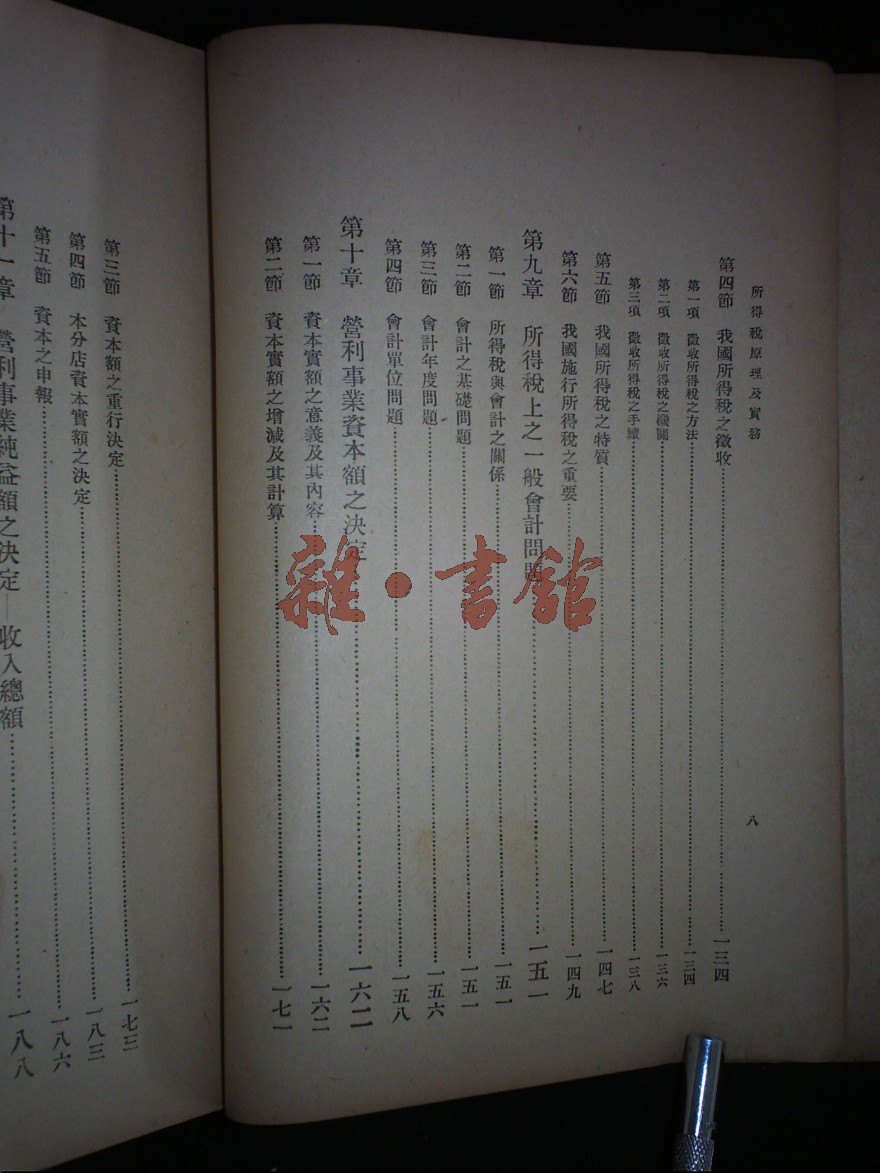 所得稅原理及實務
八
第四節 我國所得稅之徵收……一三四
第一項 徵收所得稅之方法……一三四
第二項 徵收所得稅之機關……一三六
第三項 徵收所得稅之手續……一三八
第五節 我國所得稅之特質……一四七
第六節 我國施行所得稅之重要……一四九
第九章 所得稅上之一般會計問題……一五一
第一節 所得稅與會計之關係……一五一
第二節 會計之基礎問題……一五一
第三節 會計年度問題……一五六
第四節 會計單位問題……一五八
第十章 營利事業資本額之決定……一六二
第一節 資本實額之意義及其內容……一六二
第二節 資本實額之增減及其計算……一七一
第三節 資本額之重行決定……一七三
第四節 本分店資本實額之決定……一八三
第五節 資本之申報……一八六
第十一章 營利事業純益額之決定——收入總額……一八八
雜·書館